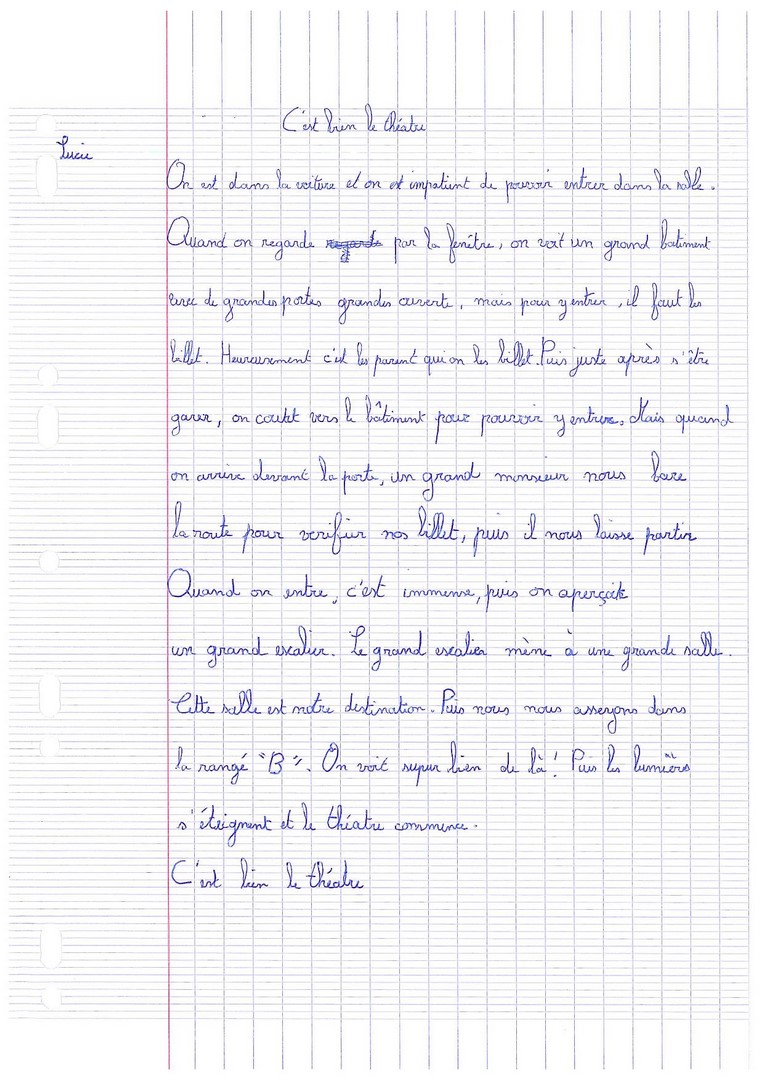 C'est bien le théatre
Lucie
On est dans la voiture et on est impatient de pouvoir entrer dans la salle.
Quand on regarde regarde par la fenêtre, on voit un grand batiment
avec de grandes portes grandes ouverte, mais pour y entrer, il faut les
billet. Heureusement c'est les parent qui on les billet. Puis juste après s'être
garer, on court vers le bâtiment pour pouvoir y entrer. Mais quand
on arrive devant la porte, un grand monsieur nous bare
la route pour verifier nos billet, puis il nous laisse partir
Quand on entre, c'est immense, puis on aperçoit
un grand escalier. Le grand escalier mène à une grande salle.
Cette salle est notre destination. Puis nous nous asseyons dans
la rangé "B". On voit super bien de là! Puis les lumières
s'éteignent et le théatre commence.
C'est bien le théatre